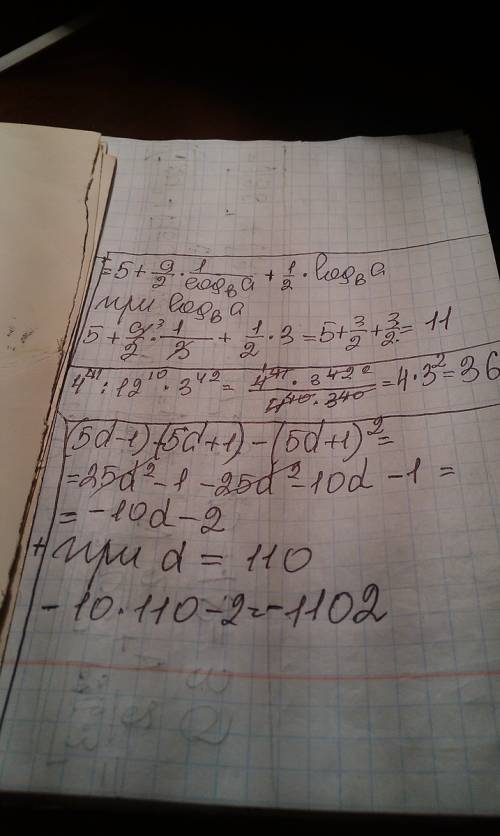 = 5 + 9/2 · 1/log_b a + 1/2 · log_b a
при log_b a
5 + 9/2 · 1/3 + 1/2 · 3 = 5 + 3/2 + 3/2 = 11
4^41 : 12^10 · 3^42 = 4^41 · 3^42 / 4^40 · 3^40 = 4 · 3^2 = 36
(5d-1)(5d+1) - (5d+1)^2 =
= 25d^2 - 1 - 25d^2 - 10d - 1 =
= -10d - 2
при d = 110
- 10 · 110 - 2 = -1102